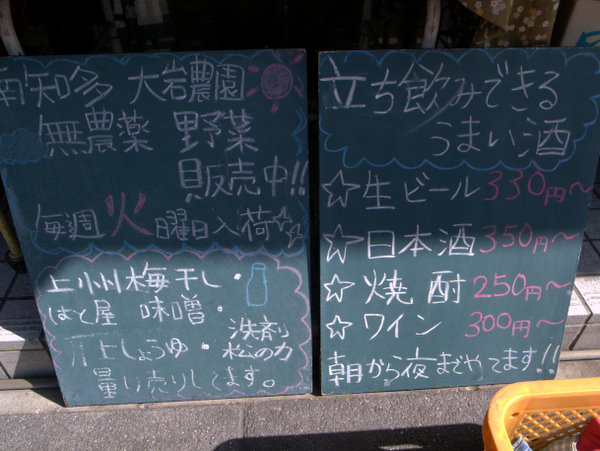 南知多 大岩農園
無農薬 野菜
販売中!!
毎週火曜日入荷
上州梅干し・
はと屋 味噌・
井上しょうゆ・洗剤
松の力
量り売りしてます。
立ち飲みできる
うまい酒
☆生ビール330円〜
☆日本酒350円〜
☆焼酎250円〜
☆ワイン300円〜
朝から夜までやってます!!